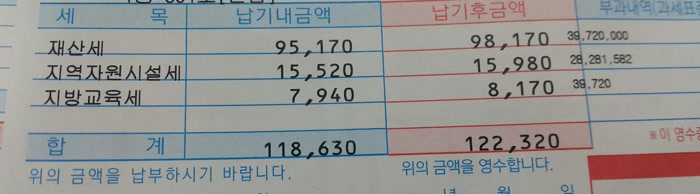 세 목 납기내금액 납기후금액 부과내역(과세표
재산세 95,170 98,170 39,720,000
지역자원시설세 15,520 15,980 28,281,582
지방교육세 7,940 8,170 39,720
합 계 118,630 122,320 ※이 영수증
위의 금액을 납부하시기 바랍니다. 위의 금액을 영수합니다.
년 월 일